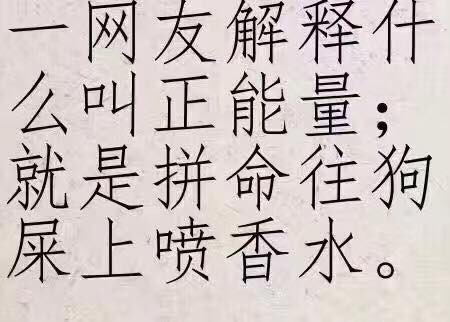 一网友解释什
么叫正能量；
就是拼命往狗
屎上喷香水。